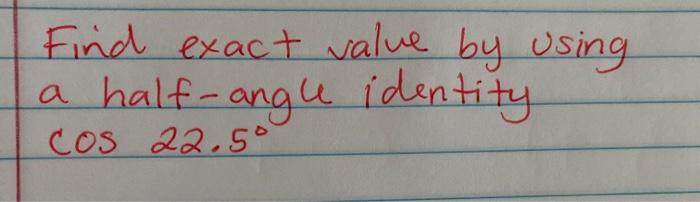 Find exact value by using
a half-angle identity
cos 22.5°